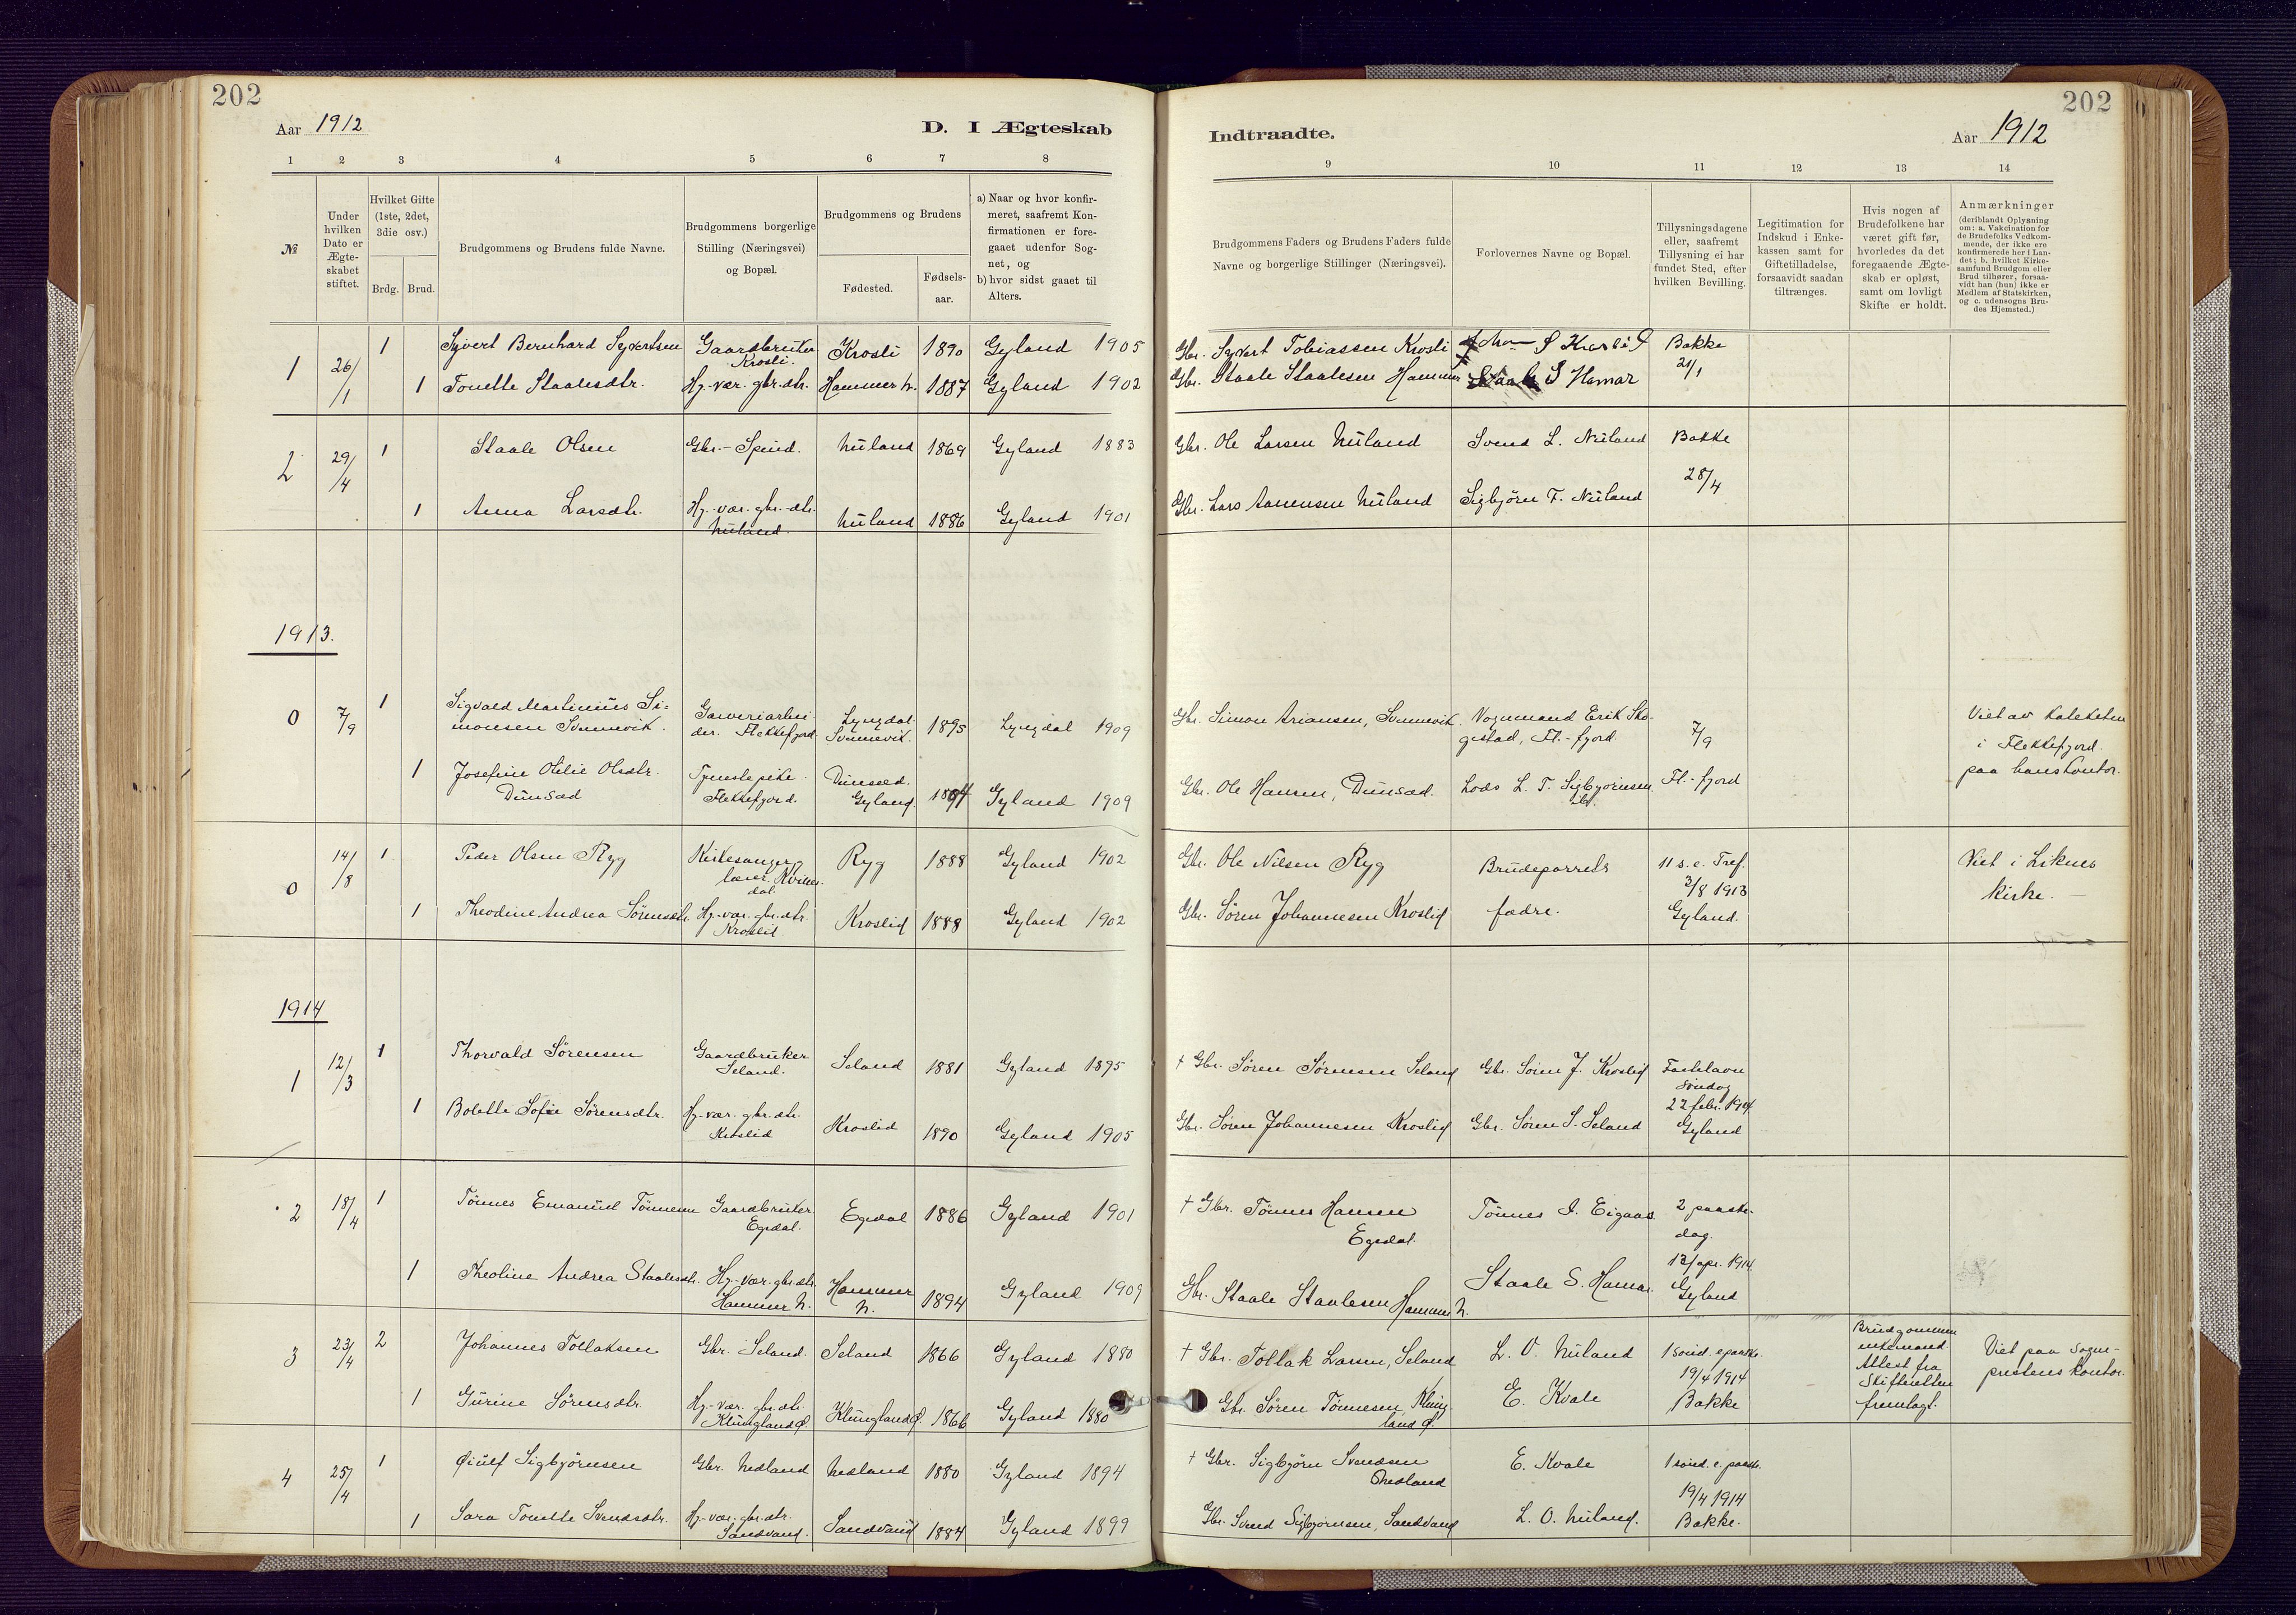 202
202
Aar 1912
D. I Ægteskab
Indtraadte.
Aar 1912
1 2 3 4 5 6 7 8
9 10 11 12 13 14
№
Under hvilken Dato er Ægteskabet stiftet.
Hvilket Gifte (1ste, 2det, 3die osv.)
Brdg. Brud.
Brudgommens og Brudens fulde Navne.
Brudgommens borgerlige Stilling (Næringsvei) og Bopæl.
Brudgommens og Brudens
Fødested.
Fødsels-aar.
a) Naar og hvor konfir-
meret, saafremt Kon-
firmationen er fore-
gaaet udenfor Sog-
net, og
b) hvor sidst gaaet til
Alters.
Brudgommens Faders og Brudens Faders fulde
Navne og borgerlige Stillinger (Næringsvei).
Forlovernes Navne og Bopæl.
Tillysningsdagene
eller, saafremt
Tillysning ei har
fundet Sted, efter
hvilken Bevilling.
Legitimation for
Indskud i Enke-
kassen samt for
Giftetilladelse,
forsaavidt saadan
tiltrænges.
Hvis nogen af
Brudefolkene har
været gift før,
hvorledes da det
foregaaende Ægte-
skab er opløst,
samt om lovligt
Skifte er holdt.
Anmærkninger
(deriblandt Oplysning
om: a. Vakcination for
de Brudefolks Vedkom-
mende, der ikke ere
konfirmerede her i Lan-
det; b. hvilket Kirke-
samfund Brudgom eller
Brud tilhører, forsaa-
vidt han (hun) ikke er
Medlem af Statskirken,
og c. udensogns Bru-
des Hjemsted.)
1 26/1 1 Syvert Bernhard Syvertsen Gaardbruker Krosli. Krosli 1890 Gyland 1905 Gbr. Syvert Tobiassen Krosli Bakke
1 Tonette Staalesdtr. Hj.-vær. gbr.dtr. Hammer n. 1887 Gyland 1902 Gbr. Staale Staalesen Hammer S Hamar 21/1
2 29/4 1 Staale Olsen Gbr.- Spind. Nuland 1869 Gyland 1883 Gbr. Ole Larsen Nuland Svend L. Nuland Bakke
28/4
1 Anna Larsdtr. Hj.-vær. gbr.-dtr. Nuland. Nuland 1886 Gyland 1901 Gbr. Lars Aanensen Nuland Sigbjørn F. Nuland
1913.
0 7/9 1 Sigvald Martinius Si=
monsen Svennevik. Garveriarbei-
der. Flekkefjord. Lyngdal Svennevik. 1895 Lyngdal 1909 Gbr. Simon Ariansen, Svennevik. Vognmand Erik Sko-
gestad, Fl.-fjord. 7/9 Viet av Kateketen
i Flekkefjord.
paa hans kontor.
1 Josefine Otilie Olsdtr.
Dunsæd Tjenestepike. Flekkefjord. Dunsæd. Gyland 1894 Gyland 1909 Gbr. Ole Hansen, Dunsæd. Lods L. T. Sigbjørnsen ibd. Fl.-fjord
0 14/8 1 Peder Olsen Ryg Kirkesanger, lærer, Kvinesdal. Ryg 1888 Gyland 1902 Gbr. Ole Nilsen Ryg Brudeparrets 11 s. e. Tref.
3/8 1913 Viet i Liknes
kirke.
1 Theodine Andrea Sørensdtr. Hj.-vær. gbr.dtr. Kroslid. Kroslid 1888 Gyland 1902 Gbr. Søren Johannesen Kroslid fædre. Gyland.
1914
1 12/3 1 Thorvald Sørensen Gaardbruker Seland. Seland 1881 Gyland 1895 † Gbr. Søren Sørensen Seland Gbr. Søren J. Kroslid Fastelavn
søndag
22 febr. 1914
1 Bolette Sofie Sørensdtr. Hj-vær. gbr. dtr. Kroslid Kroslid 1890 Gyland 1905 Gbr. Søren Johannesen Kroslid Gbr. Søren S. Seland Gyland
2 18/4 1 Tønnes Emanuel Tønnesen Gaardbruker Egedal. Egedal 1886 Gyland 1901 † Gbr. Tønnes Hansen
Egedal. Tønnes I. Eigaas 2 paaske-
dag.
13/apr. 1914
1 Theoline Andrea Staalesdtr. Hj.-vær. gbr.dtr. Hammer N. Hammer N. 1894 Gyland 1909 Gbr. Staale Staalesen Hammer N. Staale S. Hamar. Gyland
3 23/4 2 Johannes Tollaksen Gbr. Seland. Seland 1866 Gyland 1880 † Gbr. Tollak Larsen, Seland L. O. Nuland 1 sønd. e. paaske.
19/4 1914 Brudgommen
enkemand.
Attest fra
Skifteretten
fremlagt. Viet paa Sogne-
prestens kontor.
1 Gurine Sørensdtr. Hj.-vær. gbr.dtr. Klungland Ø. Klungland Ø. 1866 Gyland 1880 Gbr. Søren Tønnesen, Klung-
land Ø. E. Kvale Bakke
4 25/4 1 Øiulf Sigbjørnsen Gbr. Nedland Nedland 1880 Gyland 1894 † Gbr. Sigbjørn Svendsen
Nedland E. Kvale 1 sønd. e. paaske.
19/4 1914
1 Sara Tonette Svendsdtr. Hj.-vær. gbr.dtr. Sandvand. Sandvand 1884 Gyland 1899 Gbr. Svend Sigbjørnsen, Sandvand L. O. Nuland. Bakke.